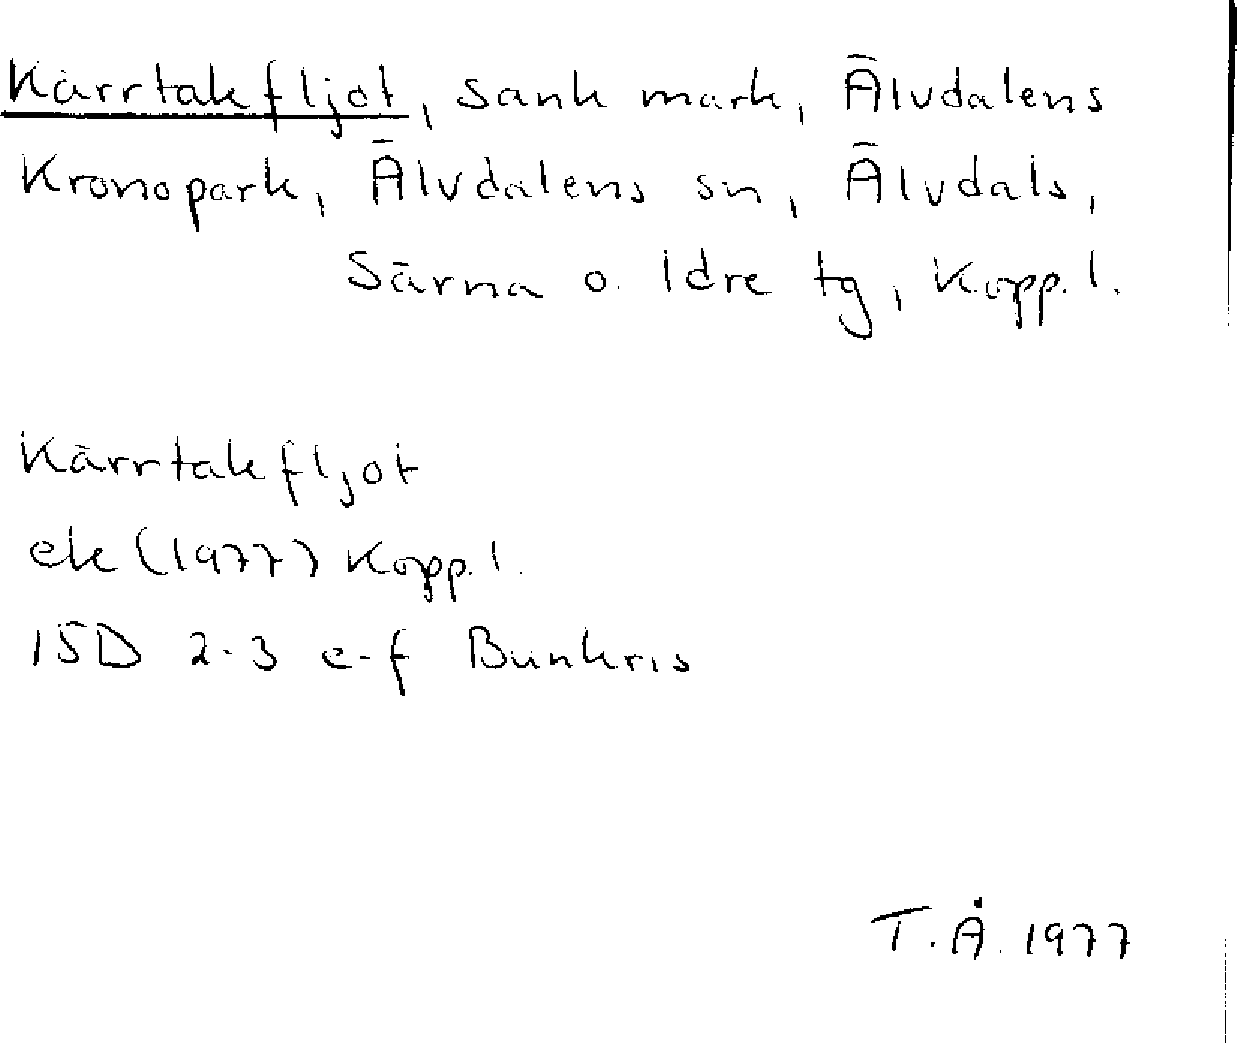 Kärrtakfljot, sank mark, Älvdalens
Kronopark, Älvdalens sn, Älvdals,
Särna o. Idre tg, Kopp. l.
Kärrtakfljot
ek (1977) Kopp. l.
15D 2-3 e-f Bunkris
T. Å. 1977